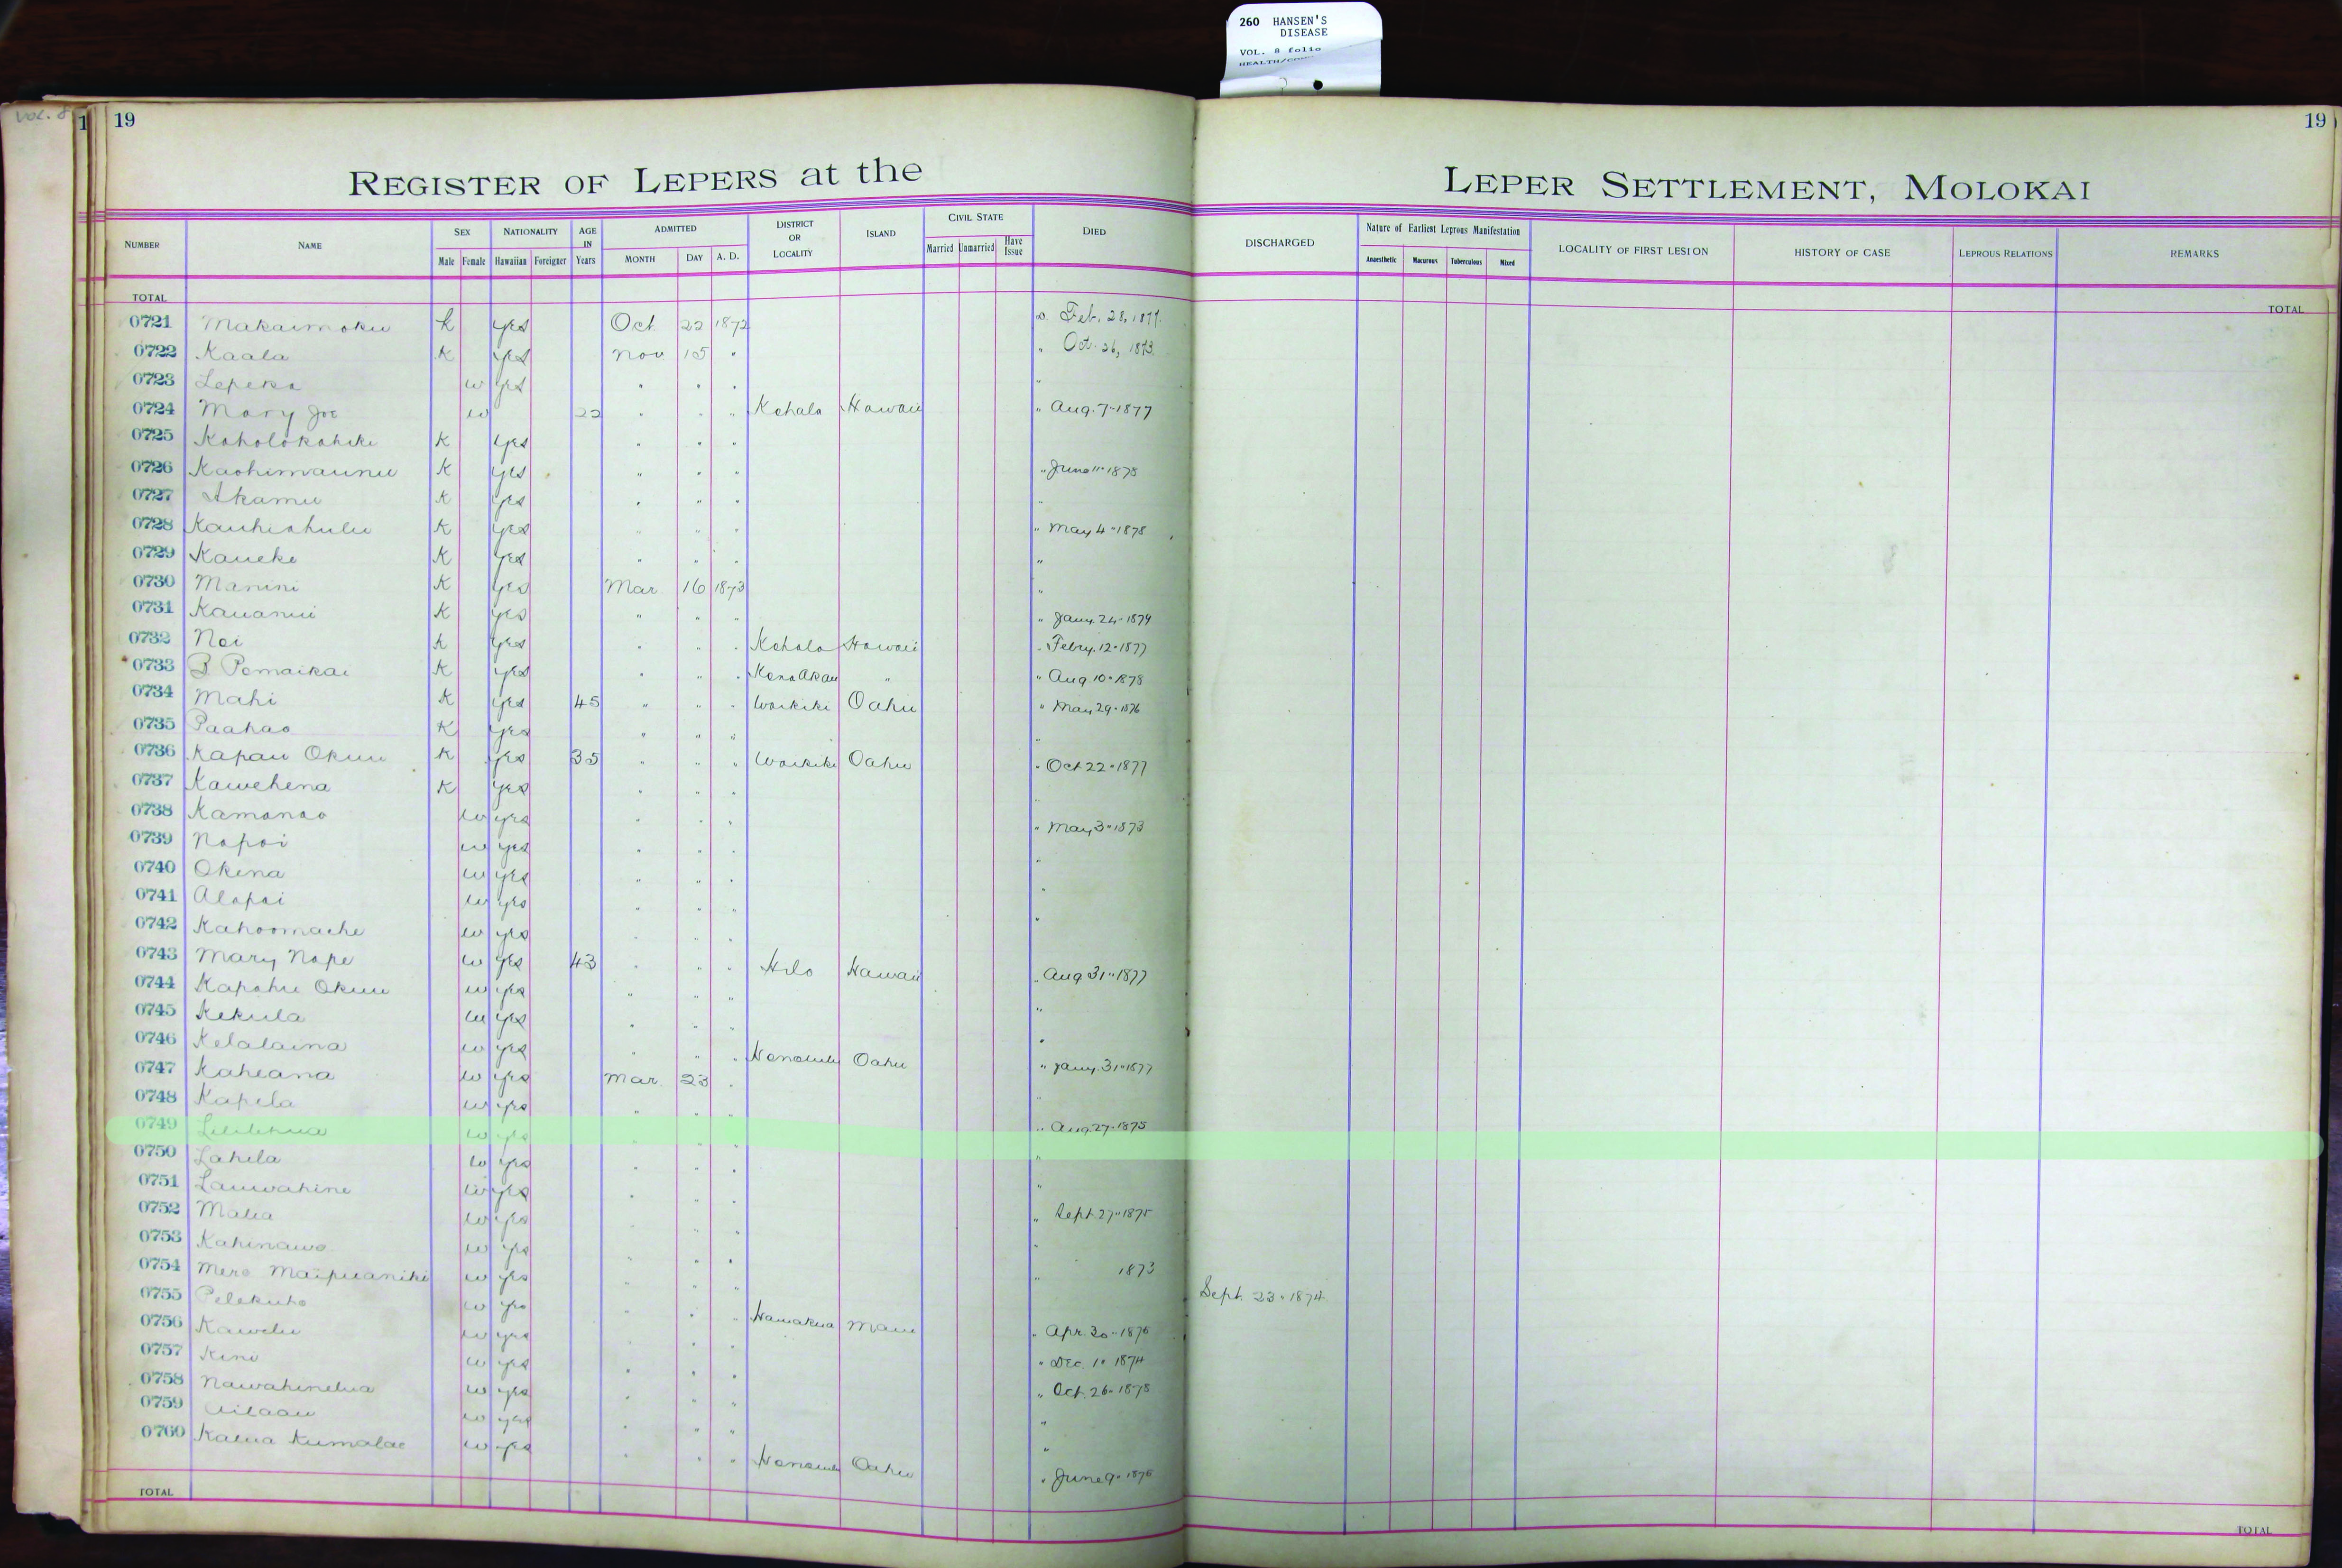 260 HANSEN'S
DISEASE
VOL. 8 folio
Vol. 8
1
19
19
REGISTER OF LEPERS at the LEPER SETTLEMENT, MOLOKAI
NUMBER NAME SEX Male Female NATIONALITY Hawaiian Foreigner AGE IN Years ADMITTED MONTH DAY A. D. DISTRICT OR LOCALITY ISLAND CIVIL STATE Married Unmarried Have Issue DIED DISCHARGED Nature of Earliest Leprous Manifestation Anaesthetic Macurous Tuberculous Mixed LOCALITY OF FIRST LESION HISTORY OF CASE LEPROUS RELATIONS REMARKS
TOTAL TOTAL
0721 Makaimoku k yes Oct 22 1872 Feb. 28, 1877
0722 Kaala K yes Nov 15 " " Oct. 26, 1873
0723 Lepeka w yes " " " "
0724 Mary Joe w 22 " " " Kohala Hawaii " Aug. 7 " 1877
0725 Koholokahiki K yes " " "
0726 Kaohimaunu K yes " " " " June 11 " 1878
0727 Akamu K yes " " " "
0728 Kauhiahulu K yes " " " " May 4 " 1878
0729 Kaueke K yes " " " "
0730 Manini K yes Mar 16 1873 "
0731 Kauanui K yes " " " " Jany. 24 " 1879
0732 Noi K yes " " " Kohala Hawaii " Febry. 12 " 1877
0733 B Pomaikai K yes " " " Kona Akau " " Aug 10 " 1878
0734 Mahi K yes 45 " " " Waikiki Oahu " May 29 " 1876
0735 Paahao K yes " " " "
0736 Kapau Okuu K yes 35 " " " Waikiki Oahu " Oct 22 " 1877
0737 Kawehena K yes " " " "
0738 Kamanao w yes " " " " May 3 " 1873
0739 Napoi w yes " " " "
0740 Okina w yes " " " "
0741 Alapai w yes " " " "
0742 Kahoomache w yes " " "
0743 Mary Nape w yes 43 " " " Hilo Hawaii " Aug 31 " 1877
0744 Kapahu Okuu w yes " " " "
0745 Kekula w yes " " " "
0746 Kelalaina w yes " " " Honolulu Oahu " Jany. 31 " 1877
0747 Kaheana w yes Mar. 23 " "
0748 Kapela w yes " " " " Aug 27 " 1875
0749 Lililehua w yes " " " "
0750 Lahela w yes " " " "
0751 Lauwahine w yes " " " " Sept. 27 " 1875
0752 Malia w yes " " " "
0753 Kahinawe w yes " " " " 1873
0754 Mere Maipuaniki w yes " " " Sept. 23 " 1874
0755 Pelekuho w yes " " " Hamakua Maui " Apr. 30 " 1876
0756 Kawelu w yes " " " " Dec. 10 1874
0757 Kini w yes " " " " Oct. 26 " 1878
0758 Nawahinelua w yes " " " "
0759 Ailaau w yes " " " "
0760 Kalua Kumalae w yes " " " Honolulu Oahu " June 9 " 1876
TOTAL TOTAL